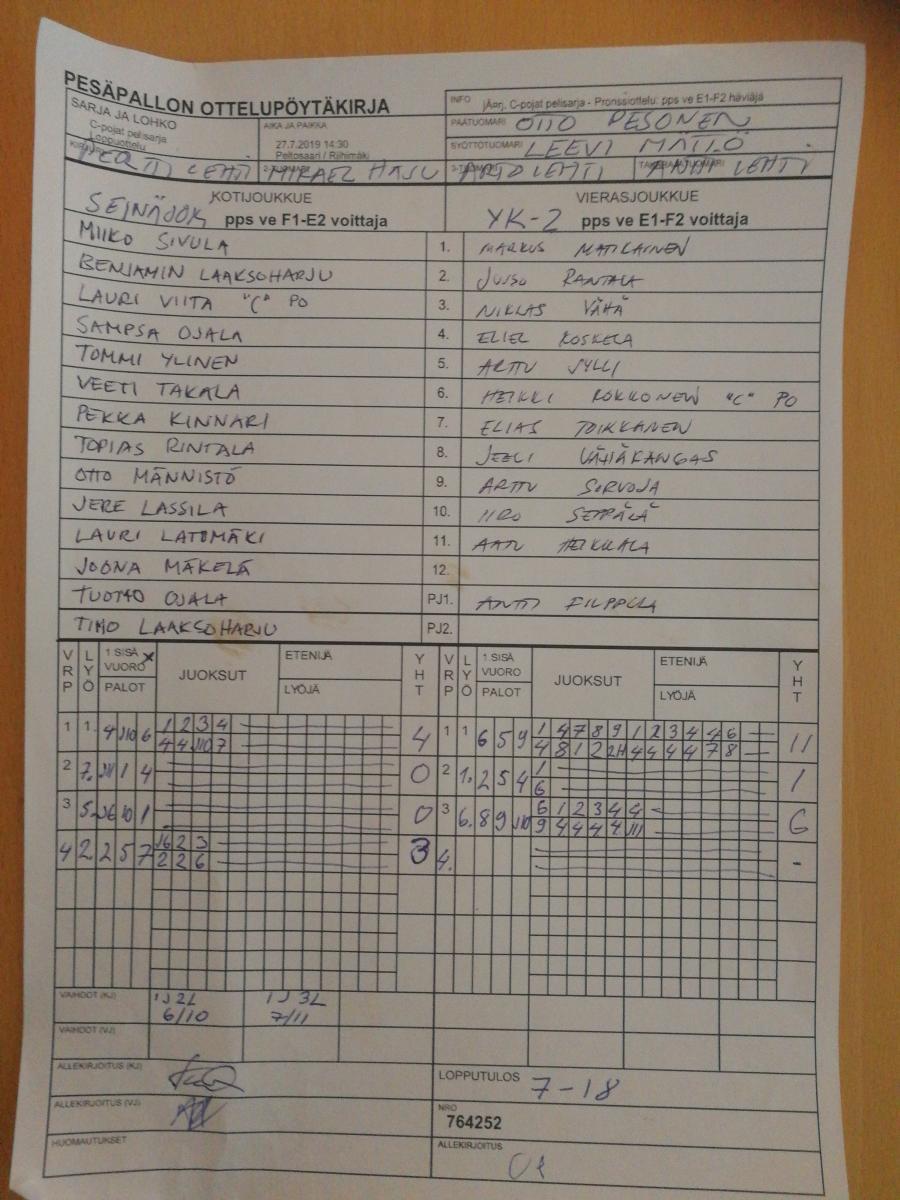 PESÄPALLON OTTELUPÖYTÄKIRJA
INFO jÄorj, C-pojat pelisarja - Pronssiottelu: pps ve E1-F2 häviäjä
SARJA JA LOHKO
C-pojat pelisarja
Loppuottelu
AIKA JA PAIKKA
27.7.2019 14:30
Peltosaari / Riihimäki
PÄÄTUOMARI OTTO PESONEN
SYÖTTÖTUOMARI LEEVI MÄTTÖ
PERTTI LEHTI MIKAEL HAJU ARTO LEHTI ANNI LEHTI
KOTIJOUKKUE VIERASJOUKKUE
SEINÄJOK pps ve F1-E2 voittaja YK-2 pps ve E1-F2 voittaja
MIIKO SIVULA 1. MARKUS MATIKAINEN
BENJAMIN LAAKSOHARJU 2. JUSSO RANTALA
LAURI VIITA "C" PO 3. NIKLAS VÄHÄ
SAMPSA OJALA 4. ELIEL KOSKELA
TOMMI YLINEN 5. ARTTU JYLLI
VEETI TAKALA 6. HEIKKI KOKKONEN "C" PO
PEKKA KINNARI 7. ELIAS TOIKKANEN
TOPIAS RINTALA 8. JEELI VÄHÄKANGAS
OTTO MÄNNISTÖ 9. ARTTU SORVOJA
JERE LASSILA 10. IIRO SEPPÄLÄ
LAURI LATOMÄKI 11. AATU HEIKKALA
JOONA MÄKELÄ 12.
TUOMO OJALA PJ1. ANTTI FILPPULA
TIMO LAAKSOHARJU PJ2.
VRP LYÖ 1.SISÄ VUORO X PALOT JUOKSUT ETENIJÄ LYÖJÄ YHT VRP LYÖ 1.SISÄ VUORO PALOT JUOKSUT ETENIJÄ LYÖJÄ YHT
1 1. 4 J10 6 1 2 3 4 4 1 1 6 5 9 1 4 7 8 9 1 2 3 4 4 6 11
4 4 J10 7 4 8 1 2 2H 4 4 4 4 7 8
2 7. J11 1 4 0 2 1. 2 5 4 1 1
6
3 5. J6 10 1 0 3 6. 8 9 J10 6 1 2 3 4 4 6
9 4 4 4 4 J11
4 2 2 5 7 J6 2 3 3 4. -
2 2 6
VAIHDOT (KJ) 1J 2L 1J 3L
6/10 7/11
VAIHDOT (VJ)
ALLEKIRJOITUS (KJ)
LOPPUTULOS 7-18
ALLEKIRJOITUS (VJ)
NRO
764252
HUOMAUTUKSET
ALLEKIRJOITUS